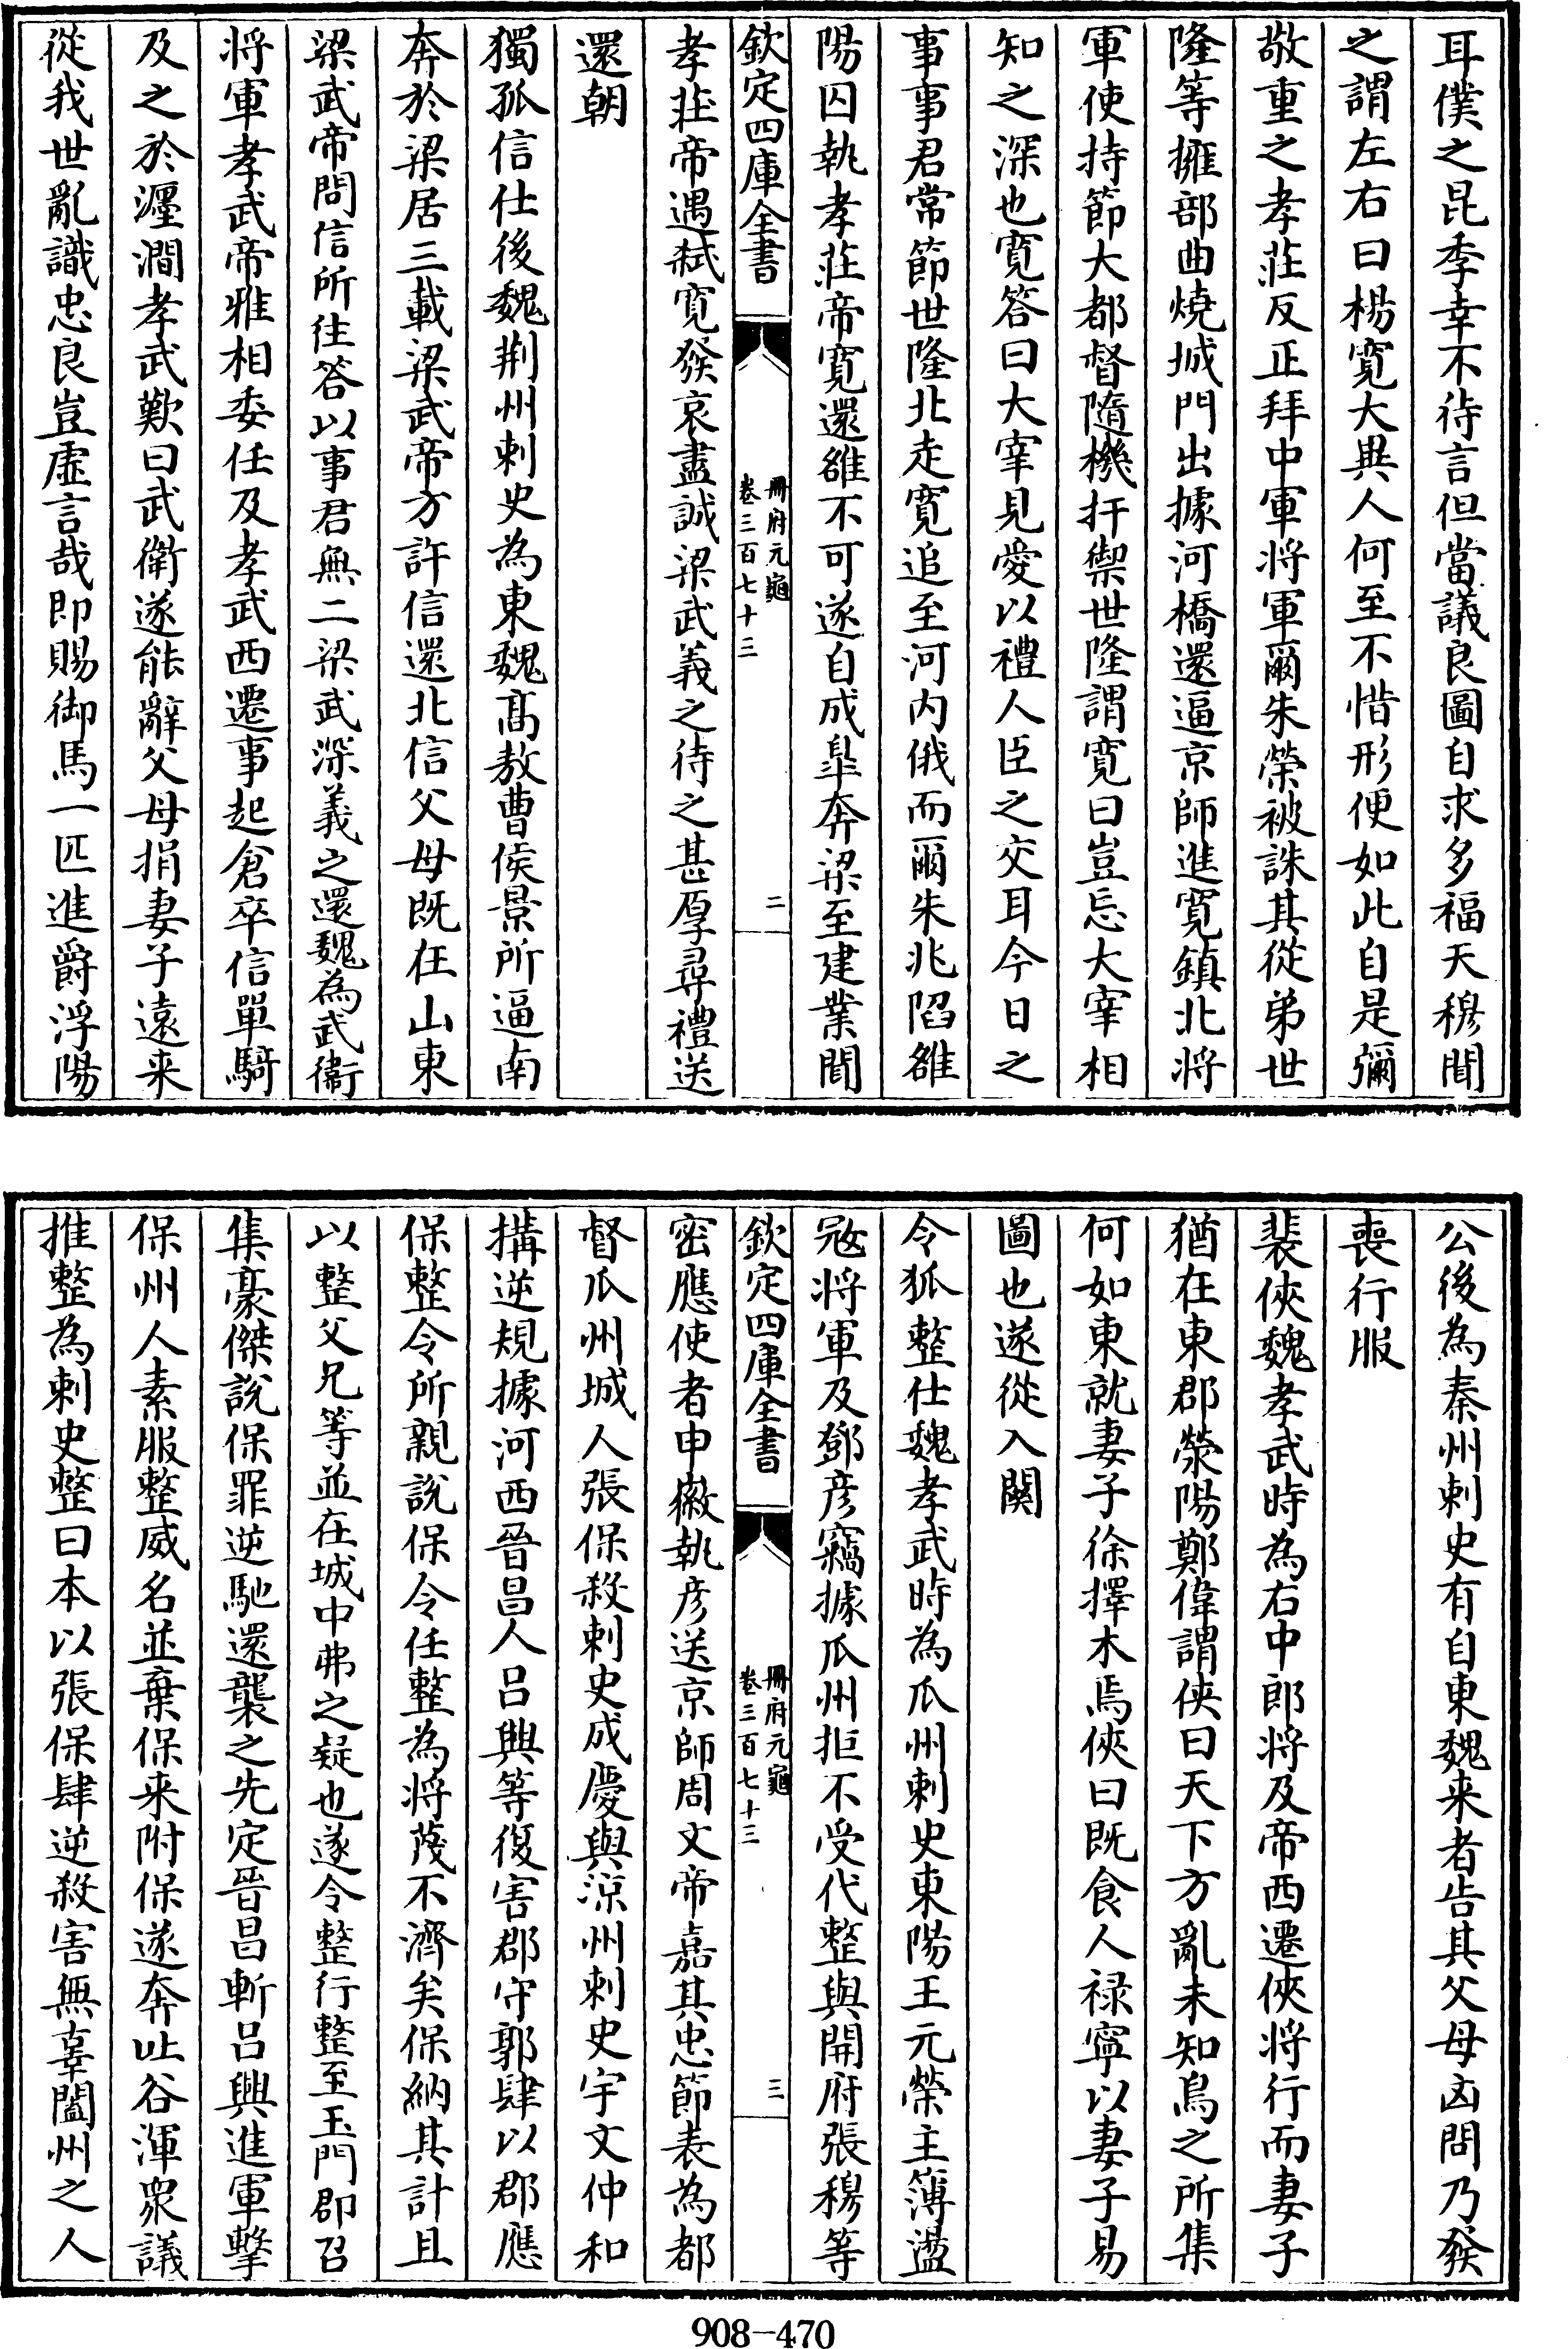 耳僕之昆季幸不待言但當議良圖自求多福天穆聞
之謂左右曰楊寛大異人何至不惜形便如此自是彌
敬重之孝莊反正拜中軍將軍爾朱榮被誅其從弟世
隆等擁部曲燒城門出據河橋還逼京師進寛鎮北將
軍使持節大都督隨機扞禦世隆謂寛曰豈忘大宰相
知之深也寛答曰大宰見愛以禮人臣之交耳今日之
事事君常節世隆北走寛追至河内俄而爾朱兆䧟雒
陽囚執孝莊帝寛還雒不可遂自成臯奔梁至建業聞
欽定四庫全書
冊府元龜
卷三百七十三
二
孝莊帝遇弑寛發哀盡誠梁武義之待之甚厚尋禮送
還朝
獨孤信仕後魏荆州刺史為東魏髙敖曹侯景所逼南
奔於梁居三載梁武帝方許信還北信父母既在山東
梁武帝問信所往答以事君無二梁武深義之還魏為武衞
將軍孝武帝雅相委任及孝武西遷事起倉卒信單騎
及之於瀍澗孝武歎曰武衞遂能辭父母捐妻子遠来
從我世亂識忠良豈虚言哉即賜御馬一匹進爵浮陽
公後為秦州刺史有自東魏来者告其父母凶問乃發
喪行服
裴俠魏孝武時為右中郎將及帝西遷俠將行而妻子
猶在東郡滎陽鄭偉謂俠曰天下方亂未知烏之所集
何如東就妻子徐擇木焉俠曰既食人禄寧以妻子易
圖也遂從入闗
令狐整仕魏孝武時為瓜州刺史東陽王元榮主簿盪
冦將軍及鄧彦竊據瓜州拒不受代整與開府張穆等
欽定四庫全書
冊府元龜
卷三百七十三
三
密應使者申徽執彦送京師周文帝嘉其忠節表為都
督瓜州城人張保殺刺史成慶與涼州刺史宇文仲和
搆逆規據河西晉昌人吕興等復害郡守郭肆以郡應
保整令所親說保令任整為將茂不濟矣保納其計且
以整父兄等並在城中弗之疑也遂令整行整至玉門郡召
集豪傑說保罪逆馳還襲之先定晉昌斬吕興進軍擊
保州人素服整威名並棄保来附保遂奔吐谷渾衆議
推整為刺史整曰本以張保肆逆殺害無辜闔州之人
908-470